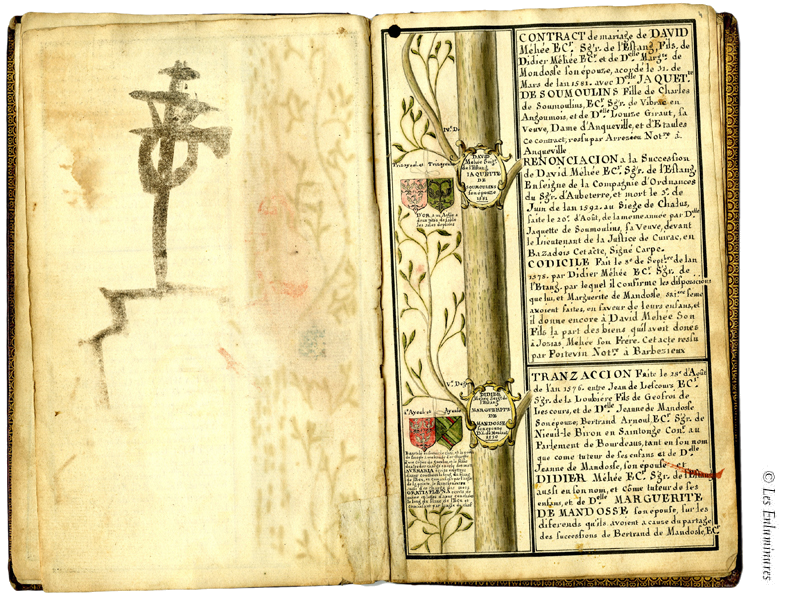 CONTRACT de mariage de DAVID
Méhée ECr. Sgr. de l'Estang, Fils, de
Didier Méhée ECr. et de Dlle Margte. de
Mondosse son épouse, acordé le 31. de
Mars de lan 1581. avec Dlle JAQUETe.
DE SOUMOULINS Fille de Charles
de Soumoulins, ECr. Sgr. de Vibrac en
Angoumois, et de Dlle Louize Giraut, sa
Veuve, Dame d'Anqueville, et d'Etaules
Ce contract, ressu par Notre. à
Anqueville
RENONCIACION a la Succession
de David Méhée ECr. Sgr. de l'Estang,
Enseigne de la Compagnie d'Ordnances
du Sgr. d'Aubeterre, et mort le 3e. de
Juin de lan 1592. au Siege de Chalus,
faite le 20e. d'Août, de la mesme année par Dlle
Jaquette de Soumoulins, sa Veuve, devant
le Lieutenant de la Justice de Cuirac, en
Bazadois Cet acte, Signé Carpe.
CODICILE Fait le 8e. de Septbre. de lan
1578. par Didier Méhée ECr. Sgr. de
l'Etang, par lequel il confirme les disposicions
que lui, et Marguerite de Mandosse, sa feme
avoient faites, en faveur de leurs enfans, et
il donne encore à David Méhée Son
Fils la part des biens qu'il avoit donés
à Josias Mehée son Frère. Cet acte ressu
par Poitevin Notre. à Barbezieux
TRANZACCION Faite le 18e. d'Août
de l'an 1576. entre Jean de Lescours ECr.
Sgr. de la Loubière Fils de Geofroi de
Lescours, et de Dlle Jeanne de Mandosse
Son épouse, Bertrand Arnoul, ECr. Sgr. de
Nieuil le Biron en Saintonge Conr. au
Parlement de Bourdeaus, tant en son nom
que come tuteur de ses enfans et de Dlle
Jeanne de Mandosse, son épouse, et
DIDIER Méhée ECr. Sgr. de l'Estang
aussi en son nom, et côme tuteur de ses
enfans, et de Dlle MARGUERITE
DE MANDOSSE son épouse, sur les
diferends qu'ils avoient a cause du partage
des successions de Bertrand de Mandosse, ECr
DAVID
Mehée Seigr.
de l'Estang
JAQUETTE
DE
SOUMOULINS
son épouze
1581
DIDIER
MARGUERITE
DE
MANDOSSE
son epouse
© Les Enluminures